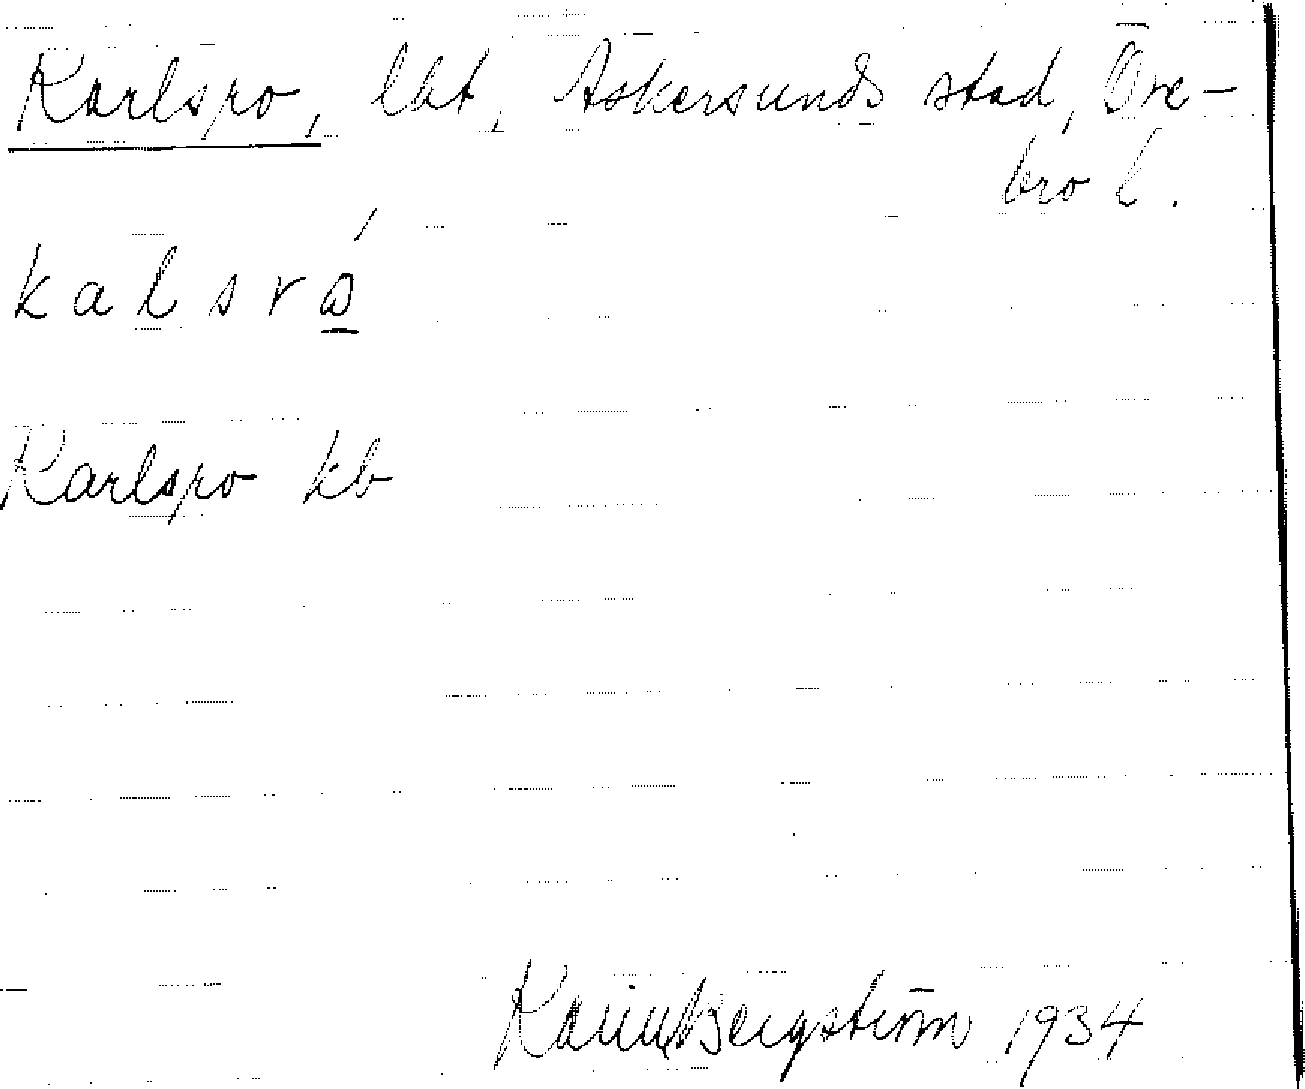 Karlsro, lht, Askersunds stad, Öre-
bro l.
kalsrò̱
Karlsro kb
Karin Bergström 1934